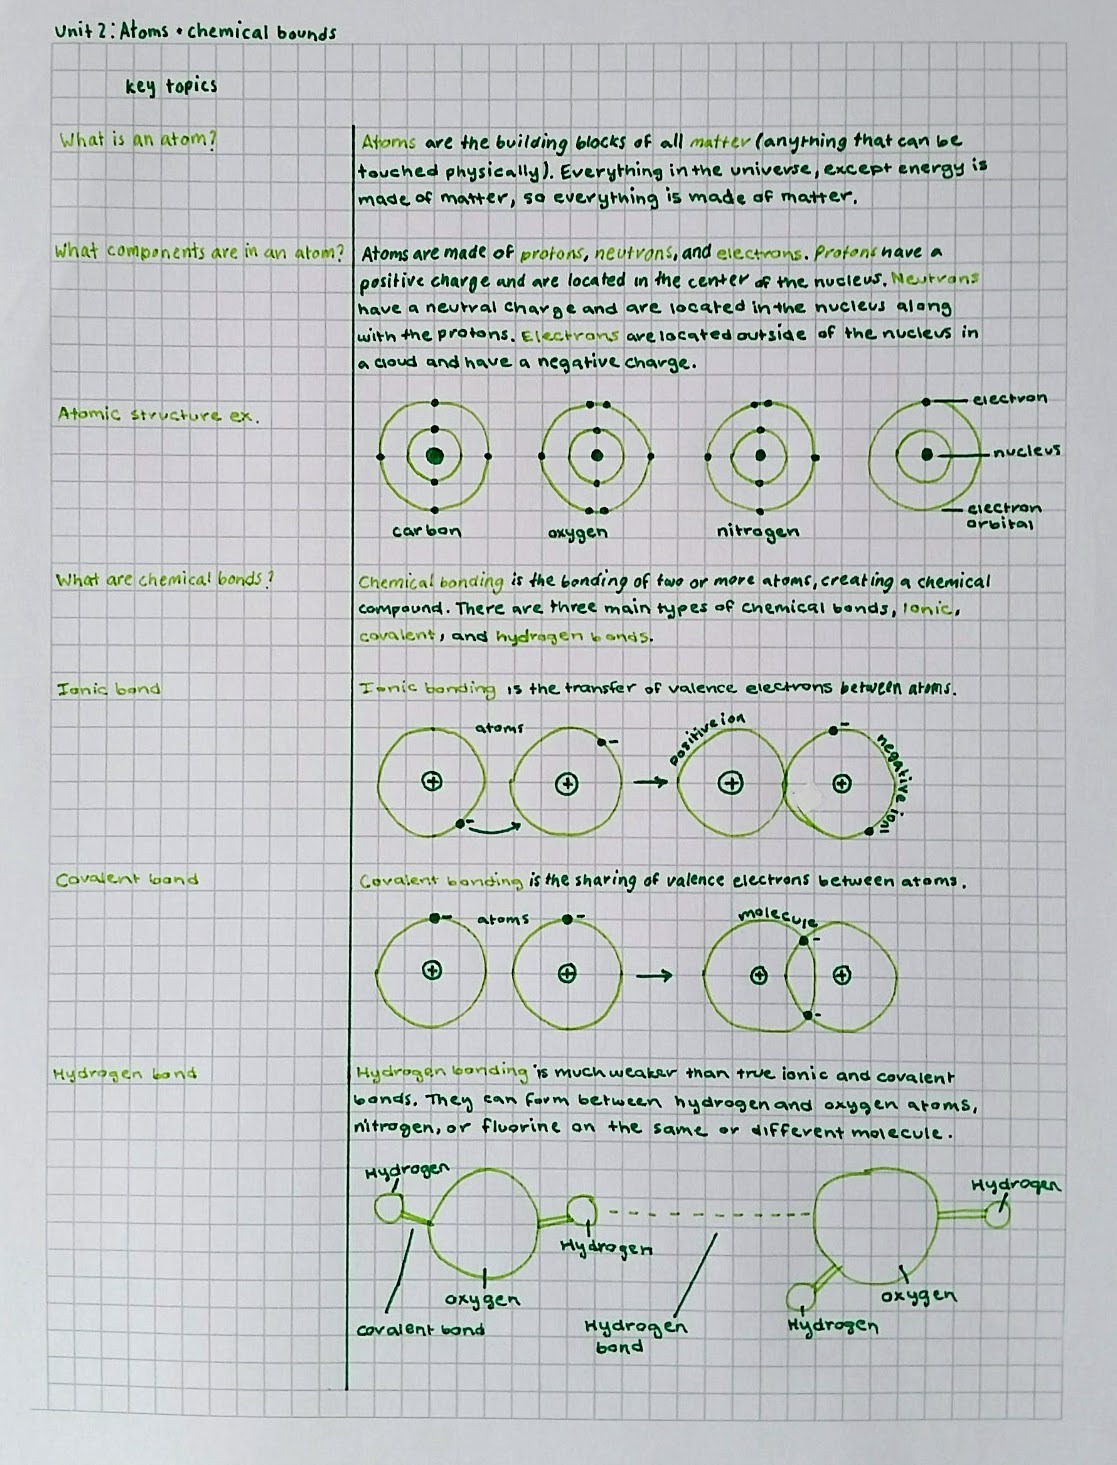 Unit 2: Atoms • chemical bounds
key topics
What is an atom?
Atoms are the building blocks of all matter (anything that can be
touched physically). Everything in the universe, except energy is
made of matter, so everything is made of matter.
What components are in an atom?
Atoms are made of protons, neutrons, and electrons. Protons have a
positive charge and are located in the center of the nucleus. Neutrons
have a neutral charge and are located in the nucleus along
with the protons. Electrons are located outside of the nucleus in
a cloud and have a negative charge.
Atomic structure ex.
electron
nucleus
electron
orbital
carbon
oxygen
nitrogen
What are chemical bonds?
Chemical bonding is the bonding of two or more atoms, creating a chemical
compound. There are three main types of chemical bonds, Ionic,
covalent, and hydrogen bonds.
Ionic bond
Ionic bonding is the transfer of valence electrons between atoms.
atoms
positive ion
negative ion
Covalent bond
Covalent bonding is the sharing of valence electrons between atoms.
atoms
molecule
Hydrogen bond
Hydrogen bonding is much weaker than true ionic and covalent
bonds. They can form between hydrogen and oxygen atoms,
nitrogen, or fluorine on the same or different molecule.
Hydrogen
Hydrogen
Hydrogen
oxygen
oxygen
covalent bond
Hydrogen
bond
Hydrogen